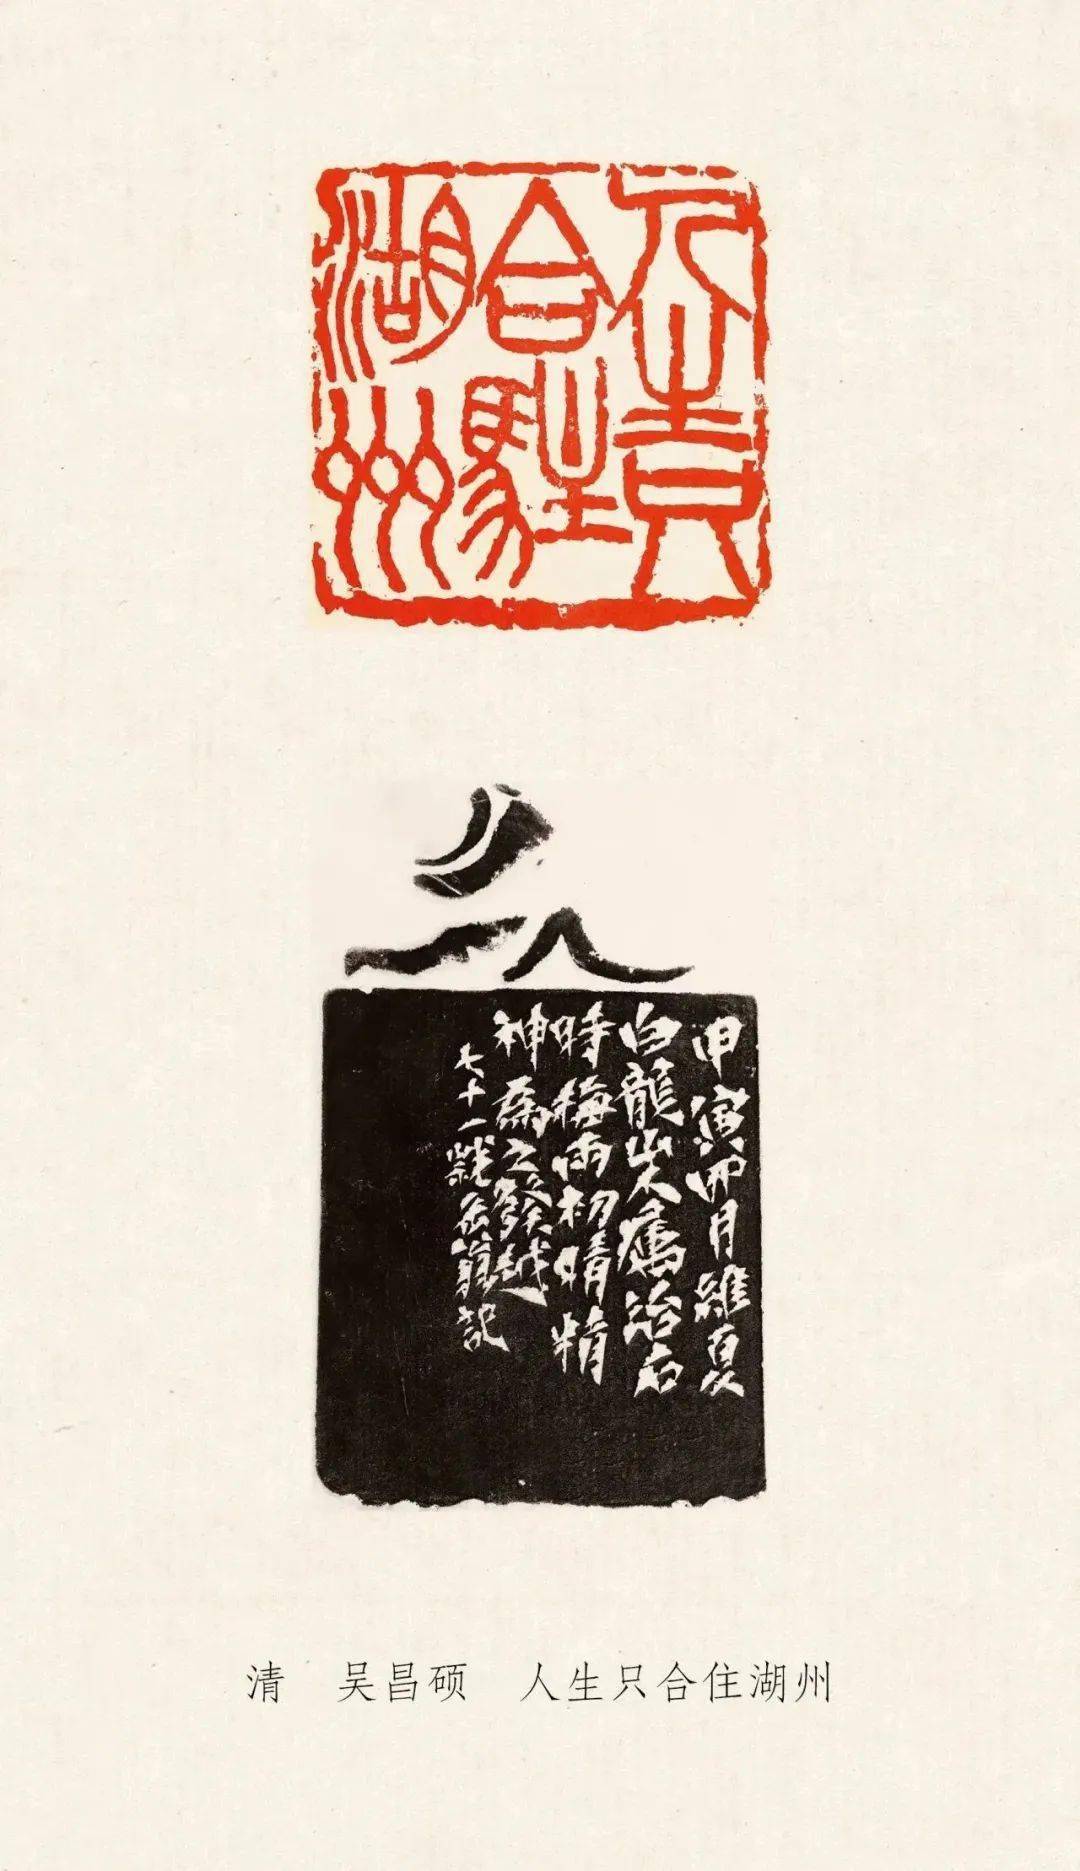 人生只
合驻
湖州
甲寅四月維夏
白龍山人屬治石
時梅雨初晴精
神為之發越
七十一歲缶翁記
清 吴昌硕 人生只合住湖州